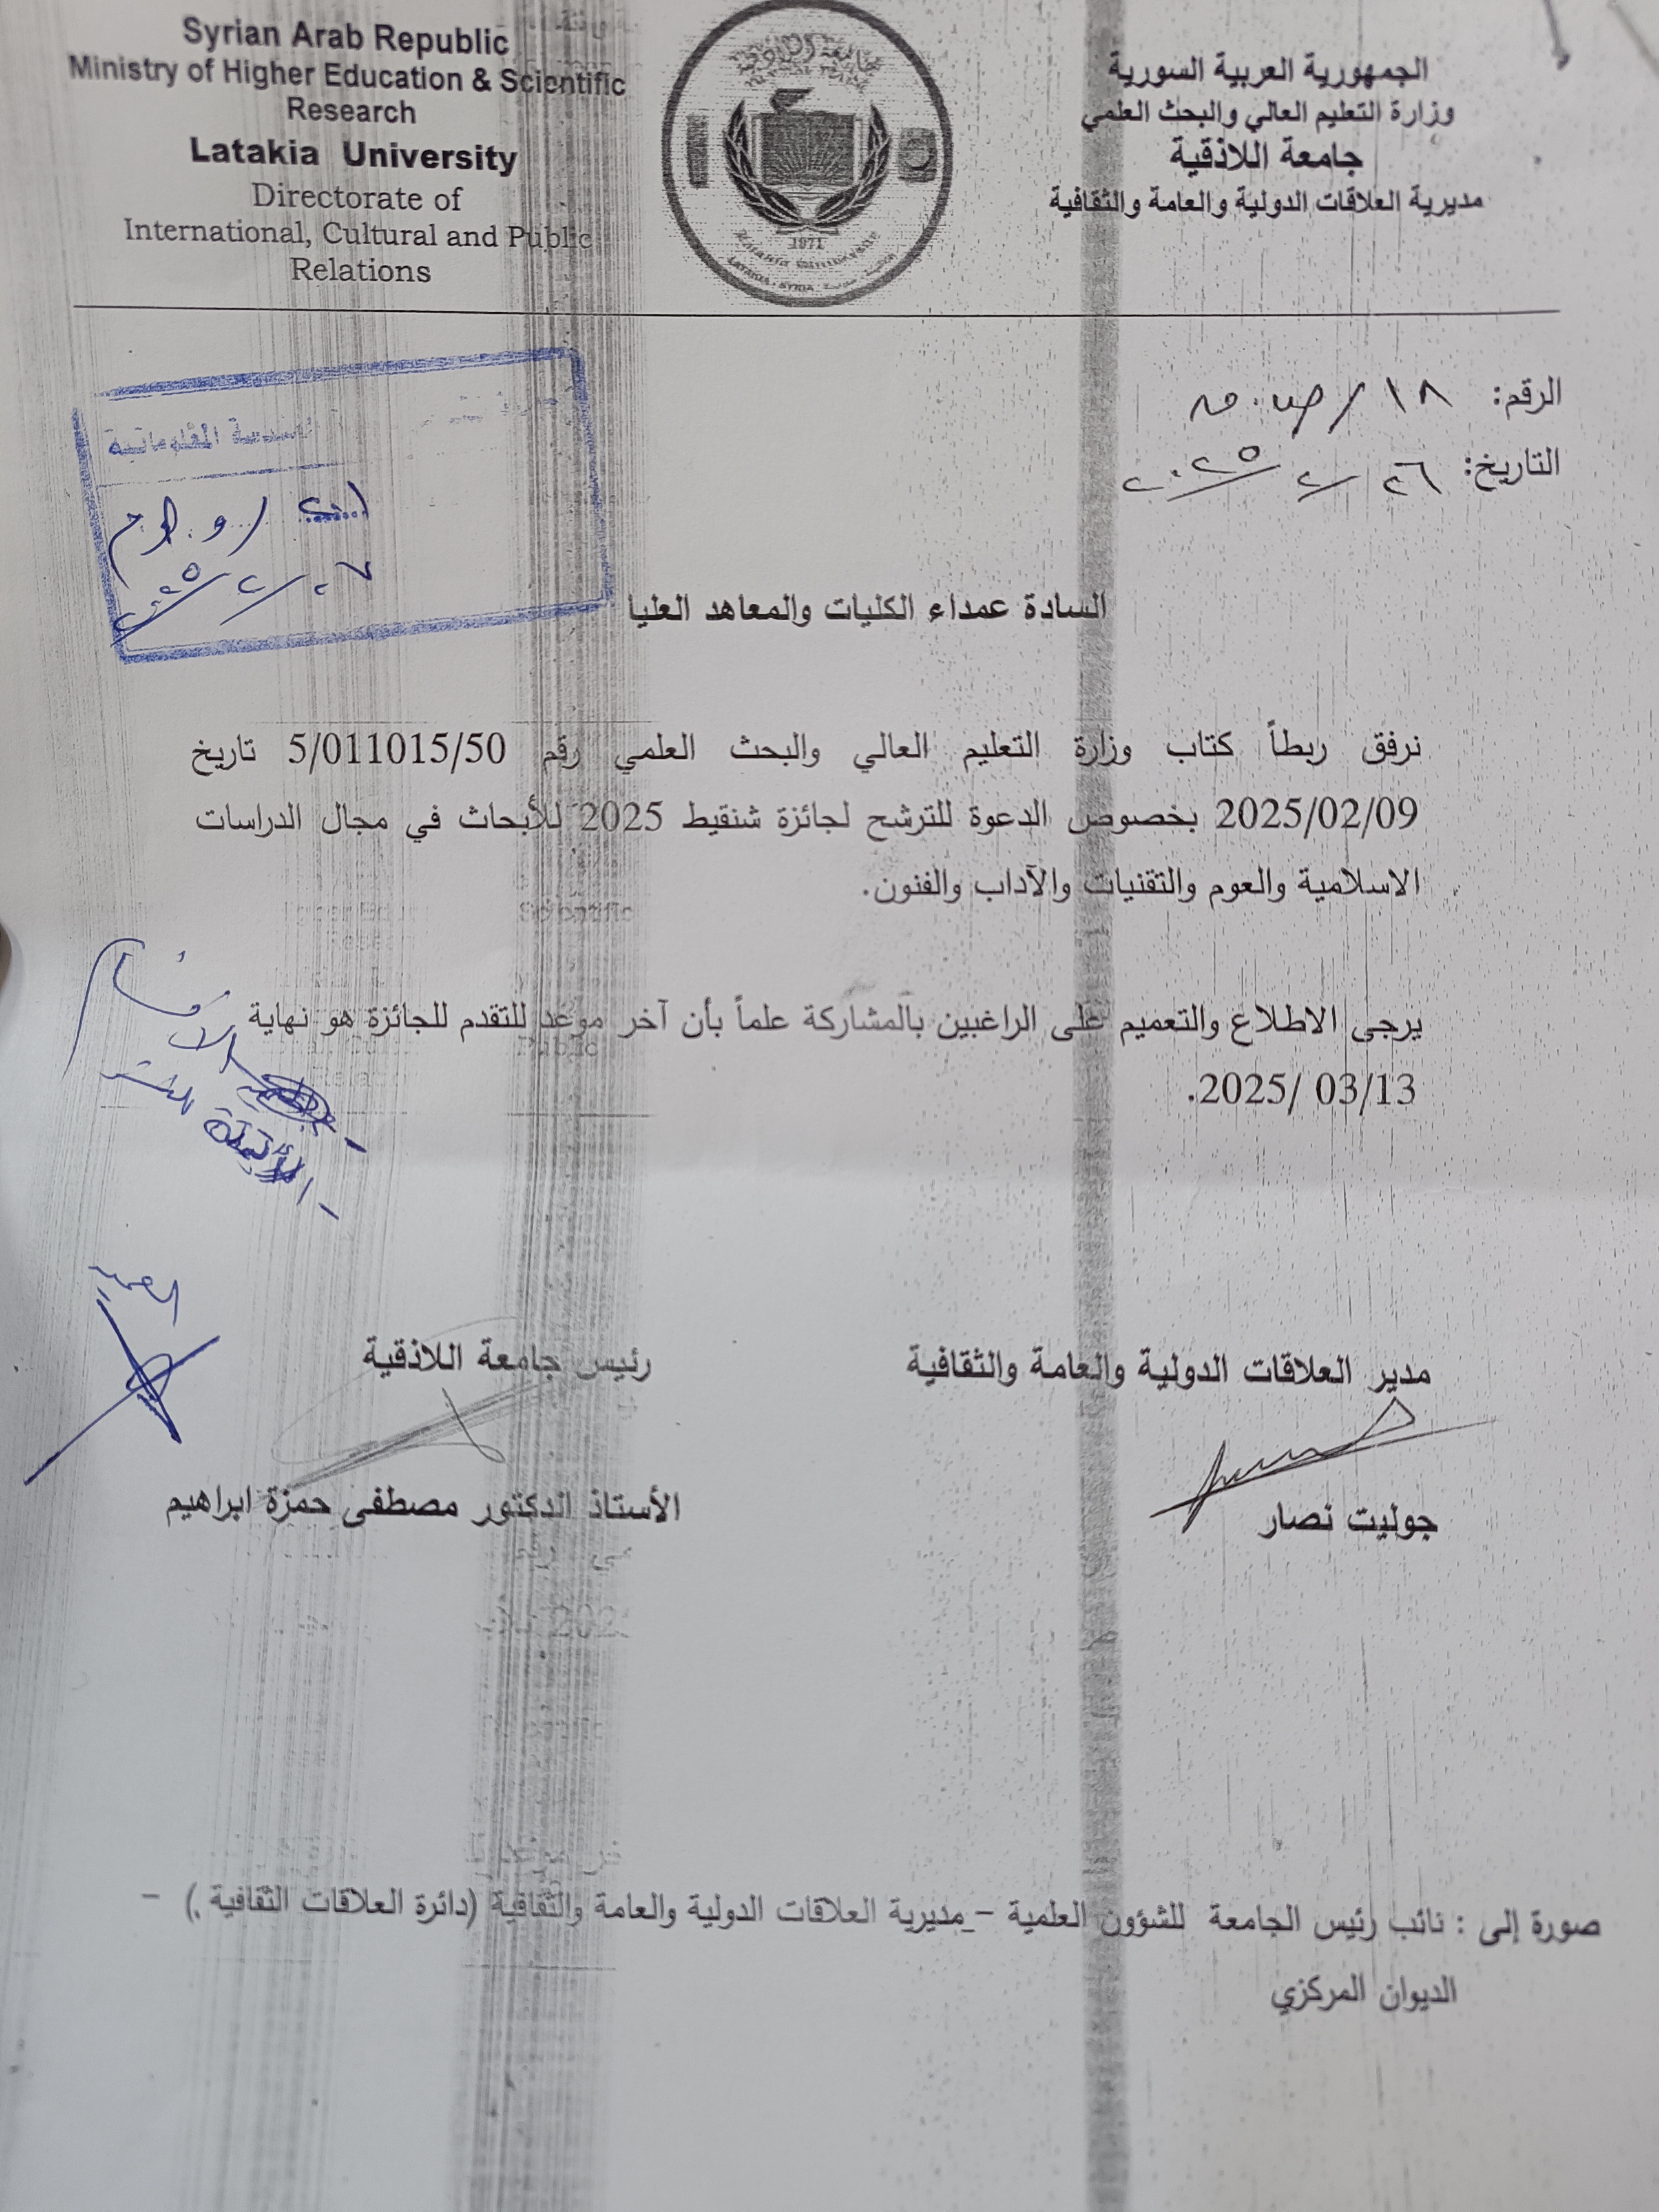 Syrian Arab Republic
Ministry of Higher Education & Scientific
Research
Latakia University
Directorate of
International, Cultural and Public
Relations
الجمهورية العربية السورية
وزارة التعليم العالي والبحث العلمي
جامعة اللاذقية
مديرية العلاقات الدولية والعامة والثقافية
1971
LATAKIA - SYRIA
الرقم: ١٨ / ص.م
التاريخ: ٢٦ / ٢ / ٢٠٢٥
المعلوماتية
السادة عمداء الكليات والمعاهد العليا
نرفق ربطاً كتاب وزارة التعليم العالي والبحث العلمي رقم 5/011015/50 تاريخ
2025/02/09 بخصوص الدعوة للترشح لجائزة شنقيط 2025 للأبحاث في مجال الدراسات
الاسلامية والعوم والتقنيات والآداب والفنون.
يرجى الاطلاع والتعميم على الراغبين بالمشاركة علماً بأن آخر موعد للتقدم للجائزة هو نهاية
2025/ 03/13.
الأقسام
العميد
مدير العلاقات الدولية والعامة والثقافية
جوليت نصار
رئيس جامعة اللاذقية
الأستاذ الدكتور مصطفى حمزة ابراهيم
صورة إلى : نائب رئيس الجامعة للشؤون العلمية – مديرية العلاقات الدولية والعامة والثقافية (دائرة العلاقات الثقافية ) –
الديوان المركزي